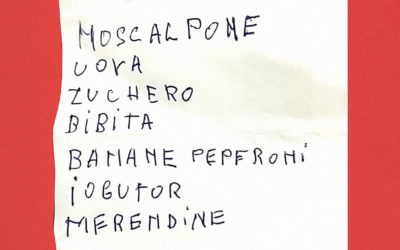 MOSCALPONE
UOVA
ZUCHERO
BIBITA
BANANE PEPFRONI
IOGUFOR
MERENDINE